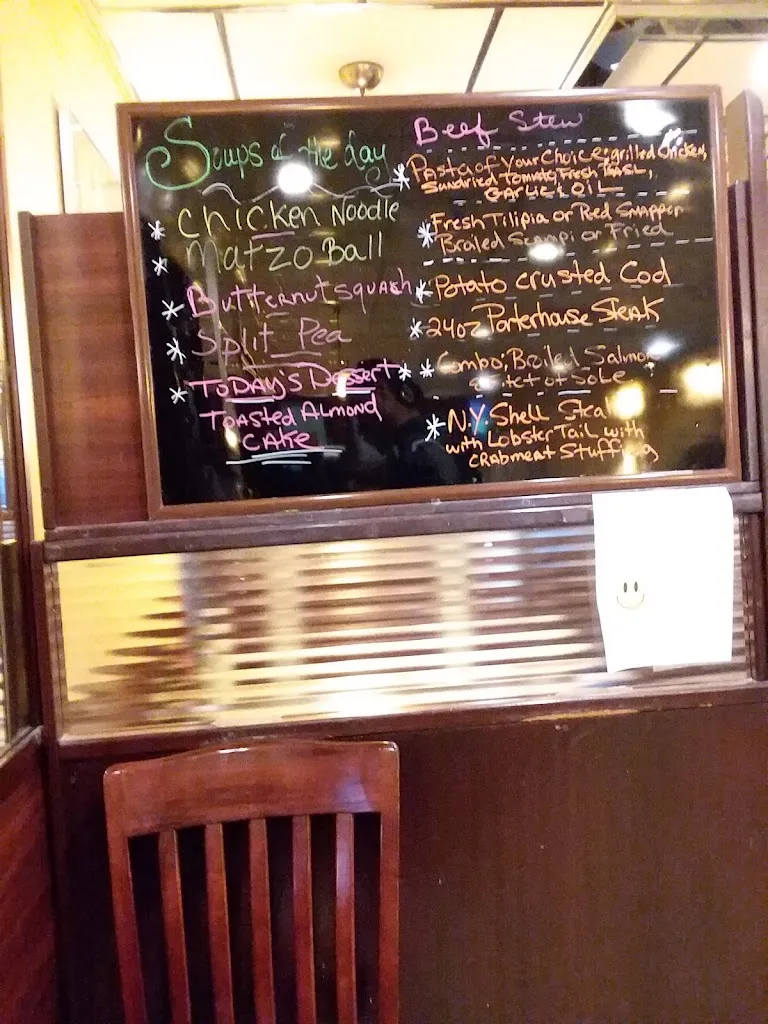 Soups of the day
* Chicken Noodle
* Matzo Ball
* Butternut squash
* Split Pea
* Today's Dessert *
Toasted Almond
Cake
Beef Stew
* Pasta of Your Choice: grilled Chicken,
Sundried Tomato, Fresh Basil,
Garlic & Oil
* Fresh Tilipia or Red Snapper
Broiled Scampi or Fried
* Potato crusted Cod
* 24oz Porterhouse Steak
* Combo; Broiled Salmon
of Sole
* N.Y. Shell Steak
with Lobster Tail with
Crabmeat Stuffing